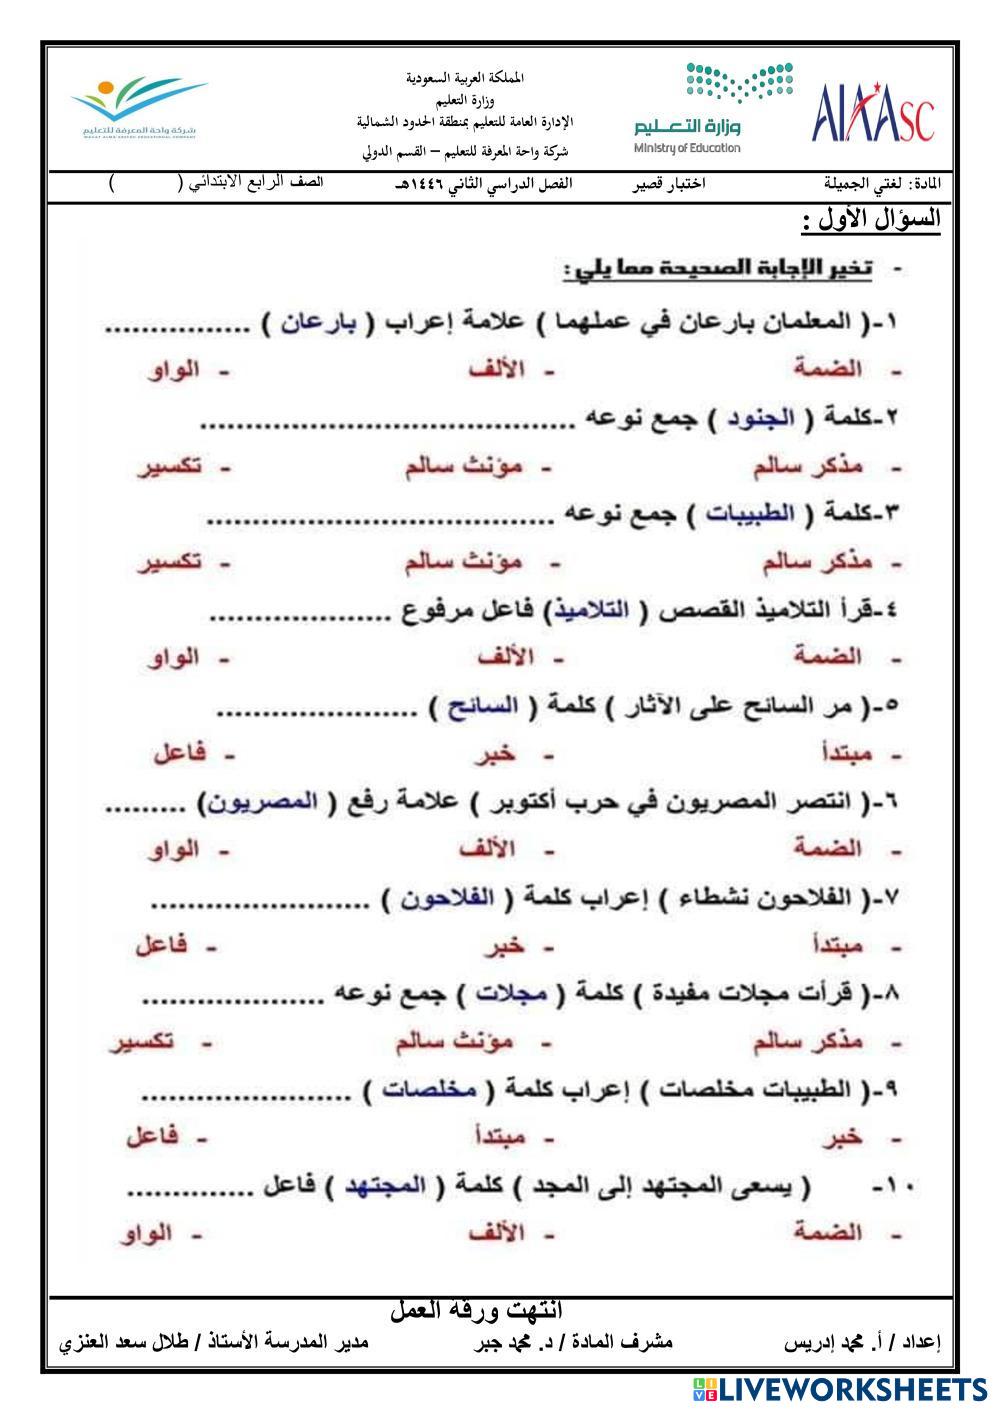 المملكة العربية السعودية
وزارة التعليم
الإدارة العامة للتعليم بمنطقة الحدود الشمالية
شركة واحة المعرفة للتعليم – القسم الدولي
شركة واحة المعرفة للتعليم
وزارة التعليم
Ministry of Education
AlAASC
المادة: لغتي الجميلة اختبار قصير الفصل الدراسي الثاني ١٤٤٦هـ الصف الرابع الابتدائي ( )
السؤال الأول :
- تخير الإجابة الصحيحة مما يلي :
١-( المعلمان بارعان في عملهما ) علامة إعراب ( بارعان ) ................
- الضمة - الألف - الواو
٢-كلمة ( الجنود ) جمع نوعه .........................................
- مذكر سالم - مؤنث سالم - تكسير
٣-كلمة ( الطبيبات ) جمع نوعه ......................................
- مذكر سالم - مؤنث سالم - تكسير
٤-قرأ التلاميذ القصص ( التلاميذ) فاعل مرفوع ....................
- الضمة - الألف - الواو
٥-( مر السائح على الآثار ) كلمة ( السائح ) ......................
- مبتدأ - خبر - فاعل
٦-( انتصر المصريون في حرب أكتوبر ) علامة رفع ( المصريون) .........
- الضمة - الألف - الواو
٧-( الفلاحون نشطاء ) إعراب كلمة ( الفلاحون ) ........................
- مبتدأ - خبر - فاعل
٨-( قرأت مجلات مفيدة ) كلمة ( مجلات ) جمع نوعه ....................
- مذكر سالم - مؤنث سالم - تكسير
٩-( الطبيبات مخلصات ) إعراب كلمة ( مخلصات ) .......................
- خبر - مبتدأ - فاعل
١٠- ( يسعى المجتهد إلى المجد ) كلمة ( المجتهد ) فاعل ..............
- الضمة - الألف - الواو
انتهت ورقة العمل
إعداد / أ. محمد إدريس مشرف المادة / د. محمد جبر مدير المدرسة الأستاذ / طلال سعد العنزي
LIVE LIVEWORKSHEETS